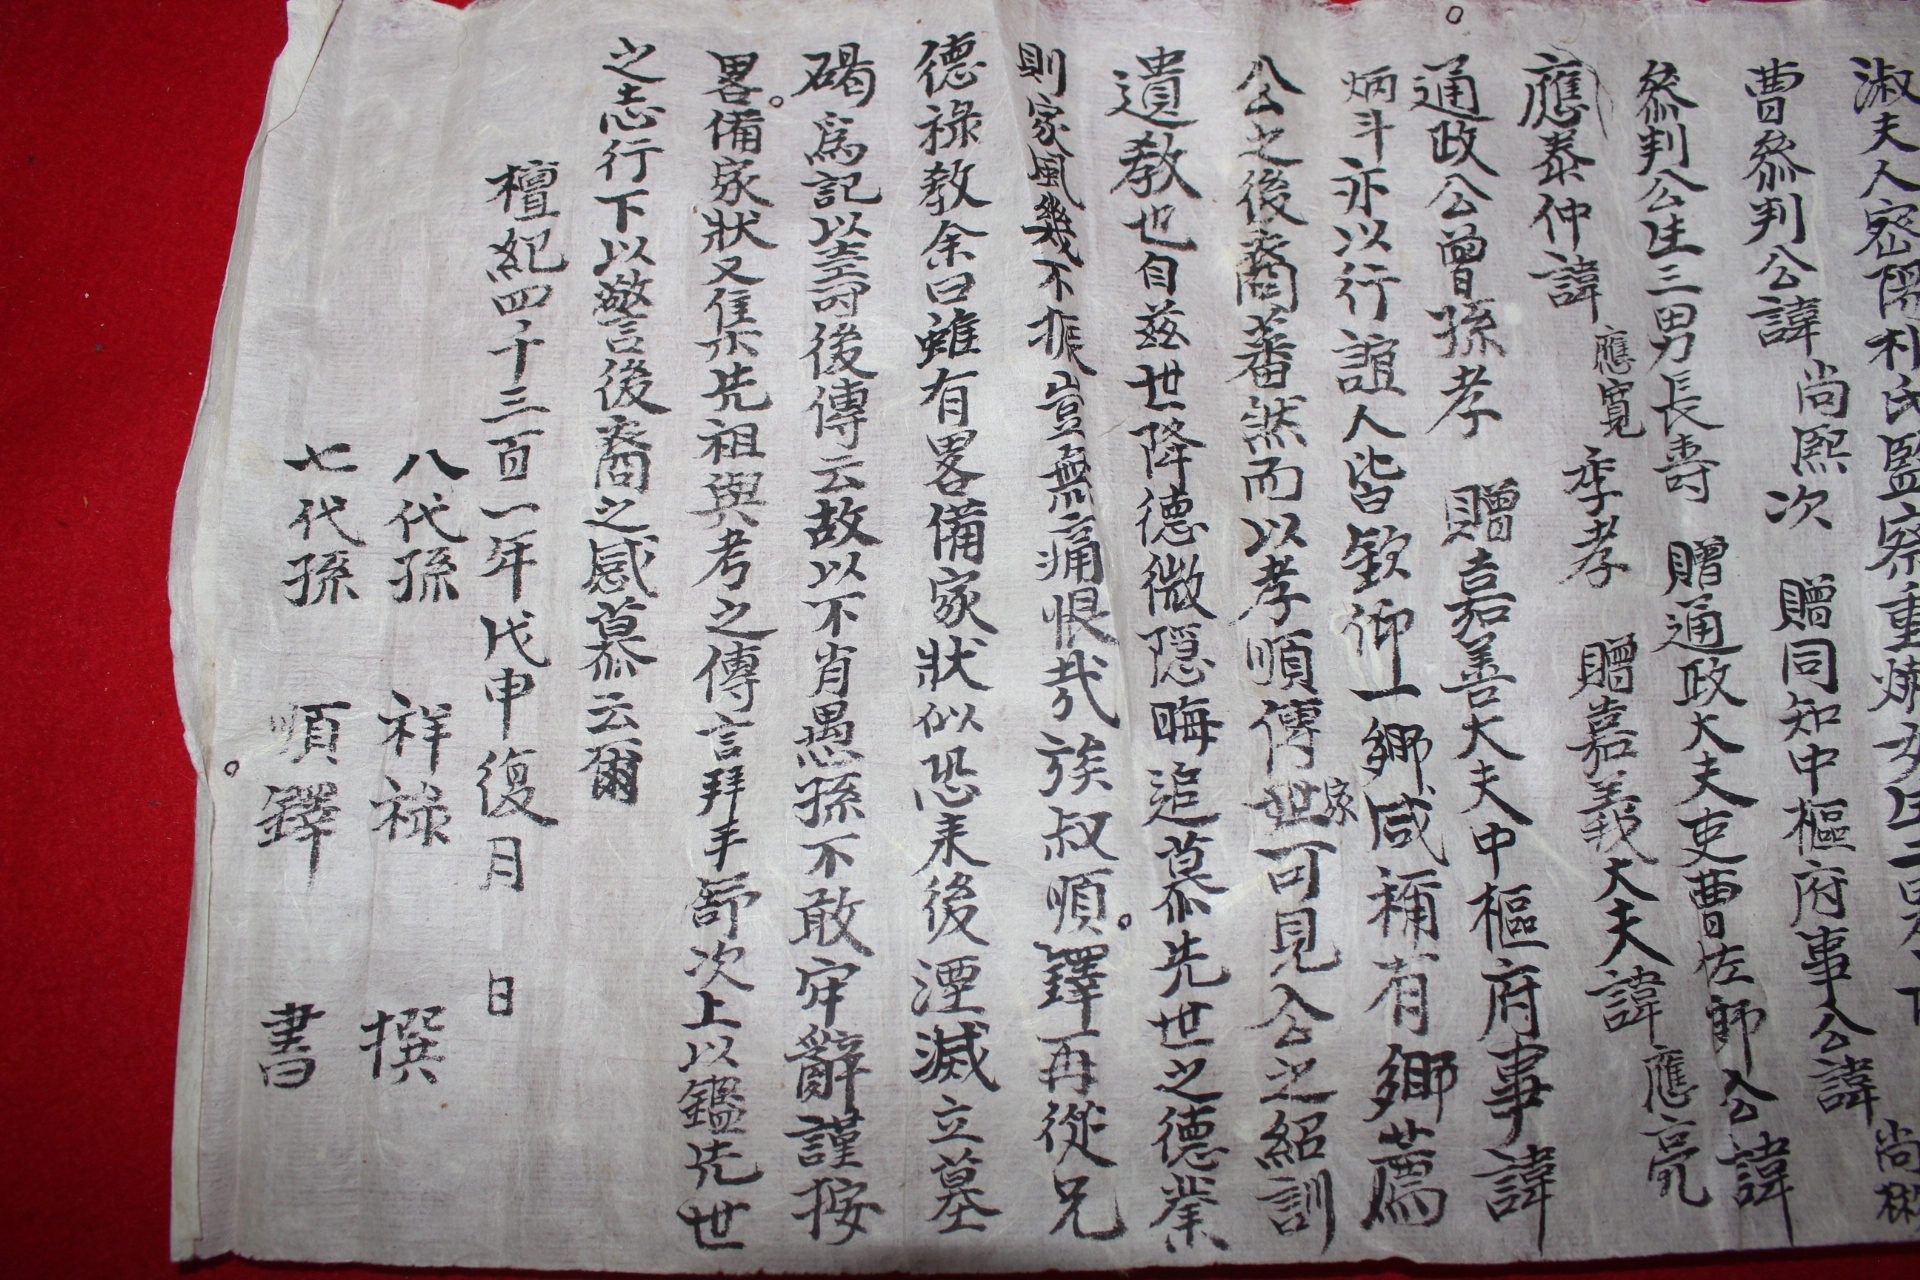 淑夫人密陽朴氏監察重煥女生二男
尚彬
曹參判公諱尚熙次 贈同知中樞府事公諱
參判公生三男長壽 贈通政大夫吏曹佐郎公諱
應泰仲諱應寬季孝 贈嘉義大夫諱應亮
通政公曾孫孝 贈嘉善大夫中樞府事諱
炳斗亦以行誼人皆欽仰一鄉咸補有鄉薦
公之後裔蕃然而以孝順傳世家可見公之紹訓
遺教也自茲世降德微隱晦追慕先世之德業
則家風幾不振豈無痛恨哉族叔順鐸再從兄
德祿教余曰雖有畧備家狀似恐未後湮滅立墓
碣爲記以壽後傳云故以不肖愚孫不敢牢辭謹按
畧備家狀又集先祖與考之傳言拜手舒次上以鑑先世
之志行下以警後裔之感慕云爾
檀紀四千三百一年戊申復月 日
八代孫 祥祿 撰
七代孫 順鐸 書